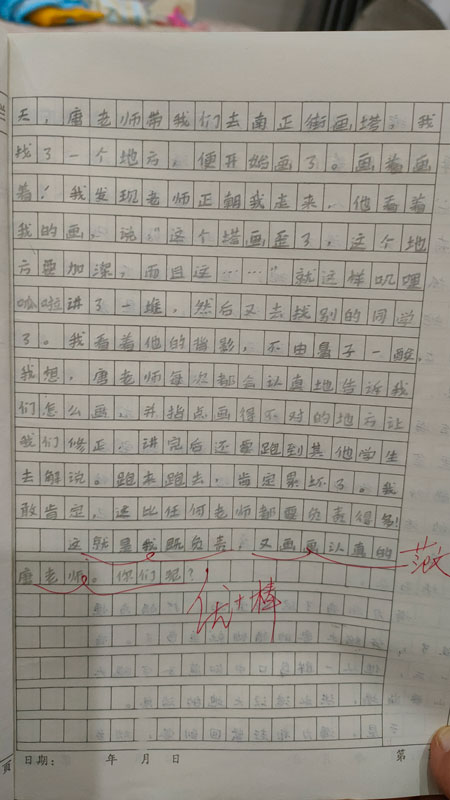 天，唐老师带我们去南正街画塔，我
找了一个地方，便开始画了。画着画
着！我发现老师正朝我走来，他看着
我的画，说“这个塔画歪了，这个地
方要加深，而且这……”就这样叽哩
呱啦讲了一堆，然后又去找别的同学
了。我看着他的背影，不由鼻子一酸。
我想，唐老师每次都会认真地告诉我
们怎么画，并指点画得不对的地方让
我们修正，讲完后还要跑到其他学生
去解说。跑来跑去，肯定累坏了。我
敢肯定，这比任何老师都要负责得多！
这就是我既负责，又画画认真的
唐老师。你们呢？
优+棒
日期： 年 月 日 第